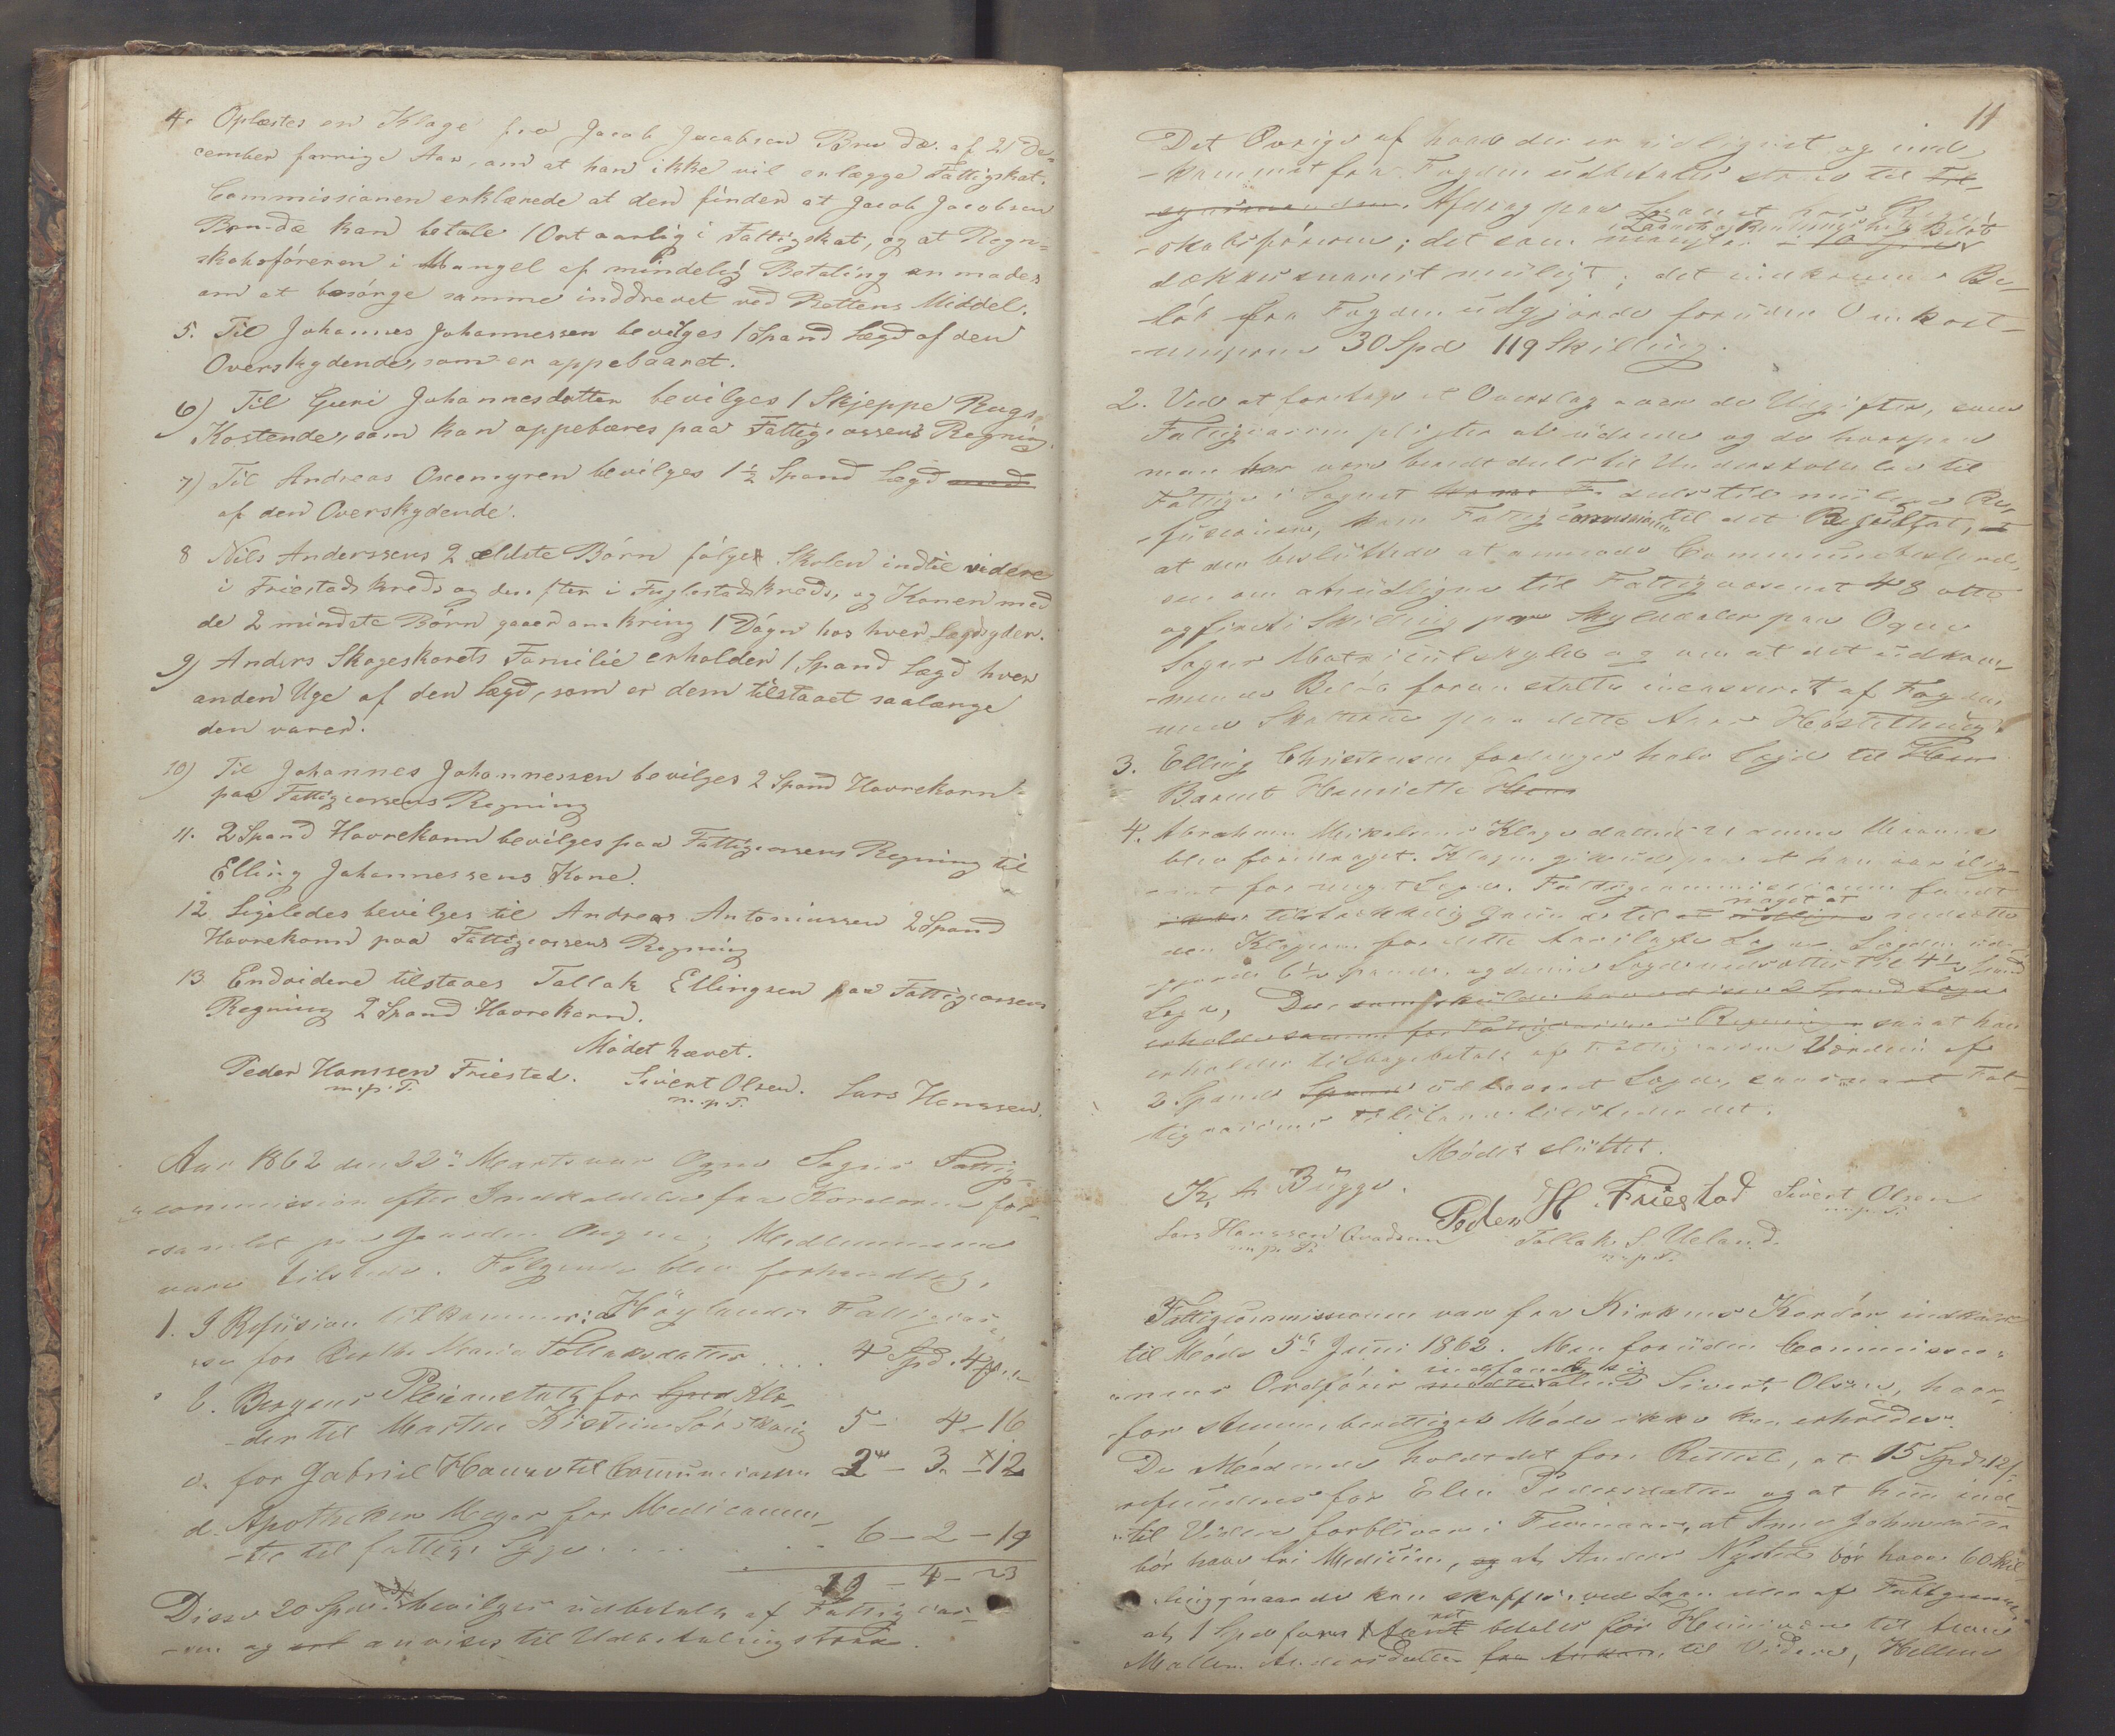 4. Oplæstes en Klage fra Jacob Jacobsen Brudæ. af 21 De-
cember forrige Aar, om at han ikke vil erlægge Fattigskat.
Commissionen erklærede at den finder at Jacob Jacobsen
Brudæ kan betale 1 Ort aarlig i Fattigskat, og at Regn-
skabsföreren i Mangel af mindelig Betaling anmodes
om at besörge samme inddrevet ved Rettens Middel.
5. Til Johannes Johannessen bevilges 1 Spand Lægd af den
Overskydende, som er oppebaaret.
6) Til Guri Johannesdatter bevilges 1 Skjeppe Rugs
Kostende, som kan oppebæres paa Fattigcassens Regning.
7) Til Andreas Oxemyren bevilges 1 1/2 Spand Lægd med
af den Overskydende.
8 Nils Anderssens 2 ældste Börn fölger Skolen indtil videre
i Friestads kreds og derefter i Fuglestadkreds, og Konen med
de 2 mindste Börn gaaer omkring 1 Dögn hos hver Lægdsyder.
9) Anders Skogeskorets Familie erholder 1 Spand Lægd hver
anden Uge af den Lægd, som er dem tilstaaet saalænge
den varer.
10) Til Johannes Johannessen bevilges 2 Spand Havrekorn
paa Fattigcassens Regning
11. 2 Spand Havrekorn bevilges paa Fattigcassens Regning til
Elling Johannessens Kone.
12 Ligeledes bevilges til Andreas Antoniussen 2 Spand
Havrekorn paa Fattigcassens Regning
13 Endvidere tilstaaes Tallak Ellingsen paa Fattigcassens
Regning 2 Spand Havrekorn.
Mödet hævet.
Peder Hanssen Friestad. Sivert Olsen. Lars Hanssen.
m.p.P. m.p.P.
Aar 1862 den 22de Marts var Ogne Sogns Fattig-
commission efter Indkaldelse fra Ordföreren for-
samlet paa Gaarden Ougne; Medlemmerne
vare tilstede. Fölgende blev forhandlet.
1. I Refusion tilkommer: a Höylands Fattigcas-
se for Berthe Maria Tollaksdatter .... 4 Spd. 4
b. Bergens Pleiestalt for Spd Klæ-
der til Marthe Kistine Sörskoug 5 - 4 - 16
c. for Gabriel Hauge til Communecassen 2 - 3 - 12
d. Apotheker Meyer for Medicamen-
ter til fattige Syge ...... 6 - 2 - 19
19 - 4 - 23
Disse 20 Spd bevilges udbetalt af Fattigcas-
sen og anvises til Udbetalingstræk.
11
Det Övrige af hvad der er udlignet og ind-
kommet fra Fogden udbetales strax til
Afdrag paa Laanet hos Regn-
skabsföreren; det som mangler i Laanets Beløb
dækkes snarest muligt; det indkomne Be-
löb fra Fogden udgjorde foruden Omkost-
ningerne 30 Spd 119 Skilling.
2. Ved at foretage et Overslag over de Udgifter, som
Fattigcassen pligter at udrede og de hvorpaa
man bör være beredt dels til Understöttelse til
Fattige i Sognet dels til mulige Re-
fusioner, kom Fattigcommissionen til det Resultat,
at den besluttede at anmode Communebestyrel-
sen om at udligne til Fattigvæsenet 48 otte
og firti Skilling pr Skylddaler paa Ogne
Sogns Matriculskyld og om at det udkom-
mende Belöb foranstaltes incasseret af Fogden
med Skatterne paa dette Aars Hösttthing.
3. Elling Christensen forlanger halv Lægd til
Barnet Henriette
4. Abraham Mikalsens Klage dateret 21 denne Maaned
blev foredraget. Klagen gik ud paa at han var ilig-
net for meget Lægd. Fattigcommissionen fandt
ikke tilstrækkelig Grund til noget at nedsætte
den Klageren for dette Aar ilagte Lægd. Lægden ud-
gjorde 6 1/2 Spand, og denne Lægd nedsættes til 4 1/2 Spand
Lægd, saa at han
erholder tilbagebetalt af Fattigcassen Værdien af
2 Spand udbaaret Lægd, saasnart Fat-
tigcassens Tilstand tilsteder det.
Mödet sluttet.
K. A. Bugge. Peder H. Friestad Sivert Olsen
m.p.P.
Lars Hanssen Tollak S. Ueland.
m.p.P. m.p.P.
Fattigcommissionen var fra Kirkens Kordör indkaldt
til Möde 5te Juni 1862. Men foruden Commissio-
nens Ordförer indfandt sig alene Sivert Olsen, hvor-
for stemmeberettiget Möde ikke kan erholdes.
De Mödende holdt det for Rettest, at 15 Spd 12 /
refunderes for Elen Pedersdatter og at hun ind-
til Videre forbliver i Tvinaas, at Anne Johanne
bör have fri Medicin, og at Anders Nysted bör have 60 Skil-
ling naar de kan skaffes ved Laan eller af Fattigcassen
at 1 Spd betales for Huusværelse til Anne
Malene Andersdatter til Videre, Hellene